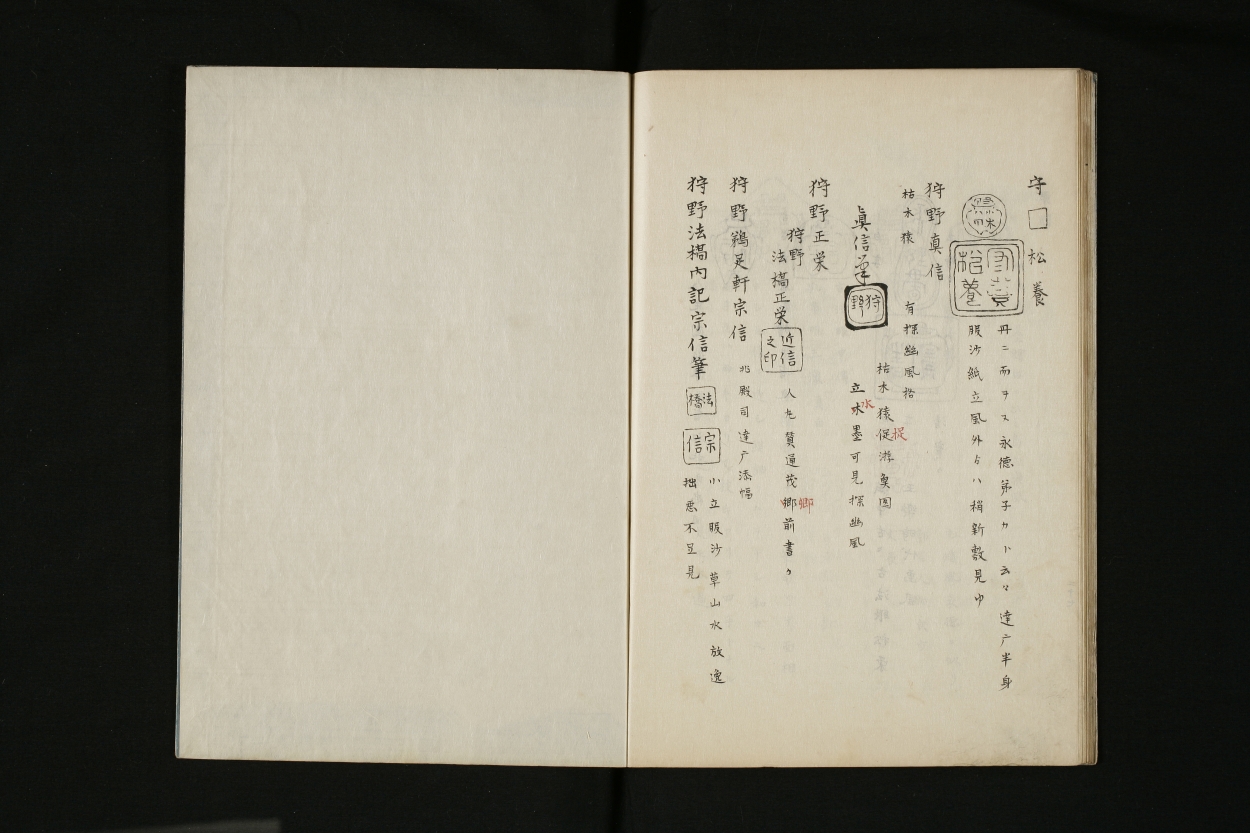 守□松養
松養
丹ニ而ヲス永徳弟子カト云々 達广半身
服沙紙立風外ゟハ稍新敷見ゆ
狩野眞信
枯木猿 有探幽風格
枯木猿促游魚図
捉
眞信筆
狩野
立水墨可見探幽風
水
狩野正栄
狩野
法橋正栄
近信之印
人丸賛通茂郷前書
卿
狩野鶏足軒宗信
兆殿司達广添幅
狩野法橋内記宗信筆
法橋
宗信
小立服沙草山水放逸
拙悪不足見